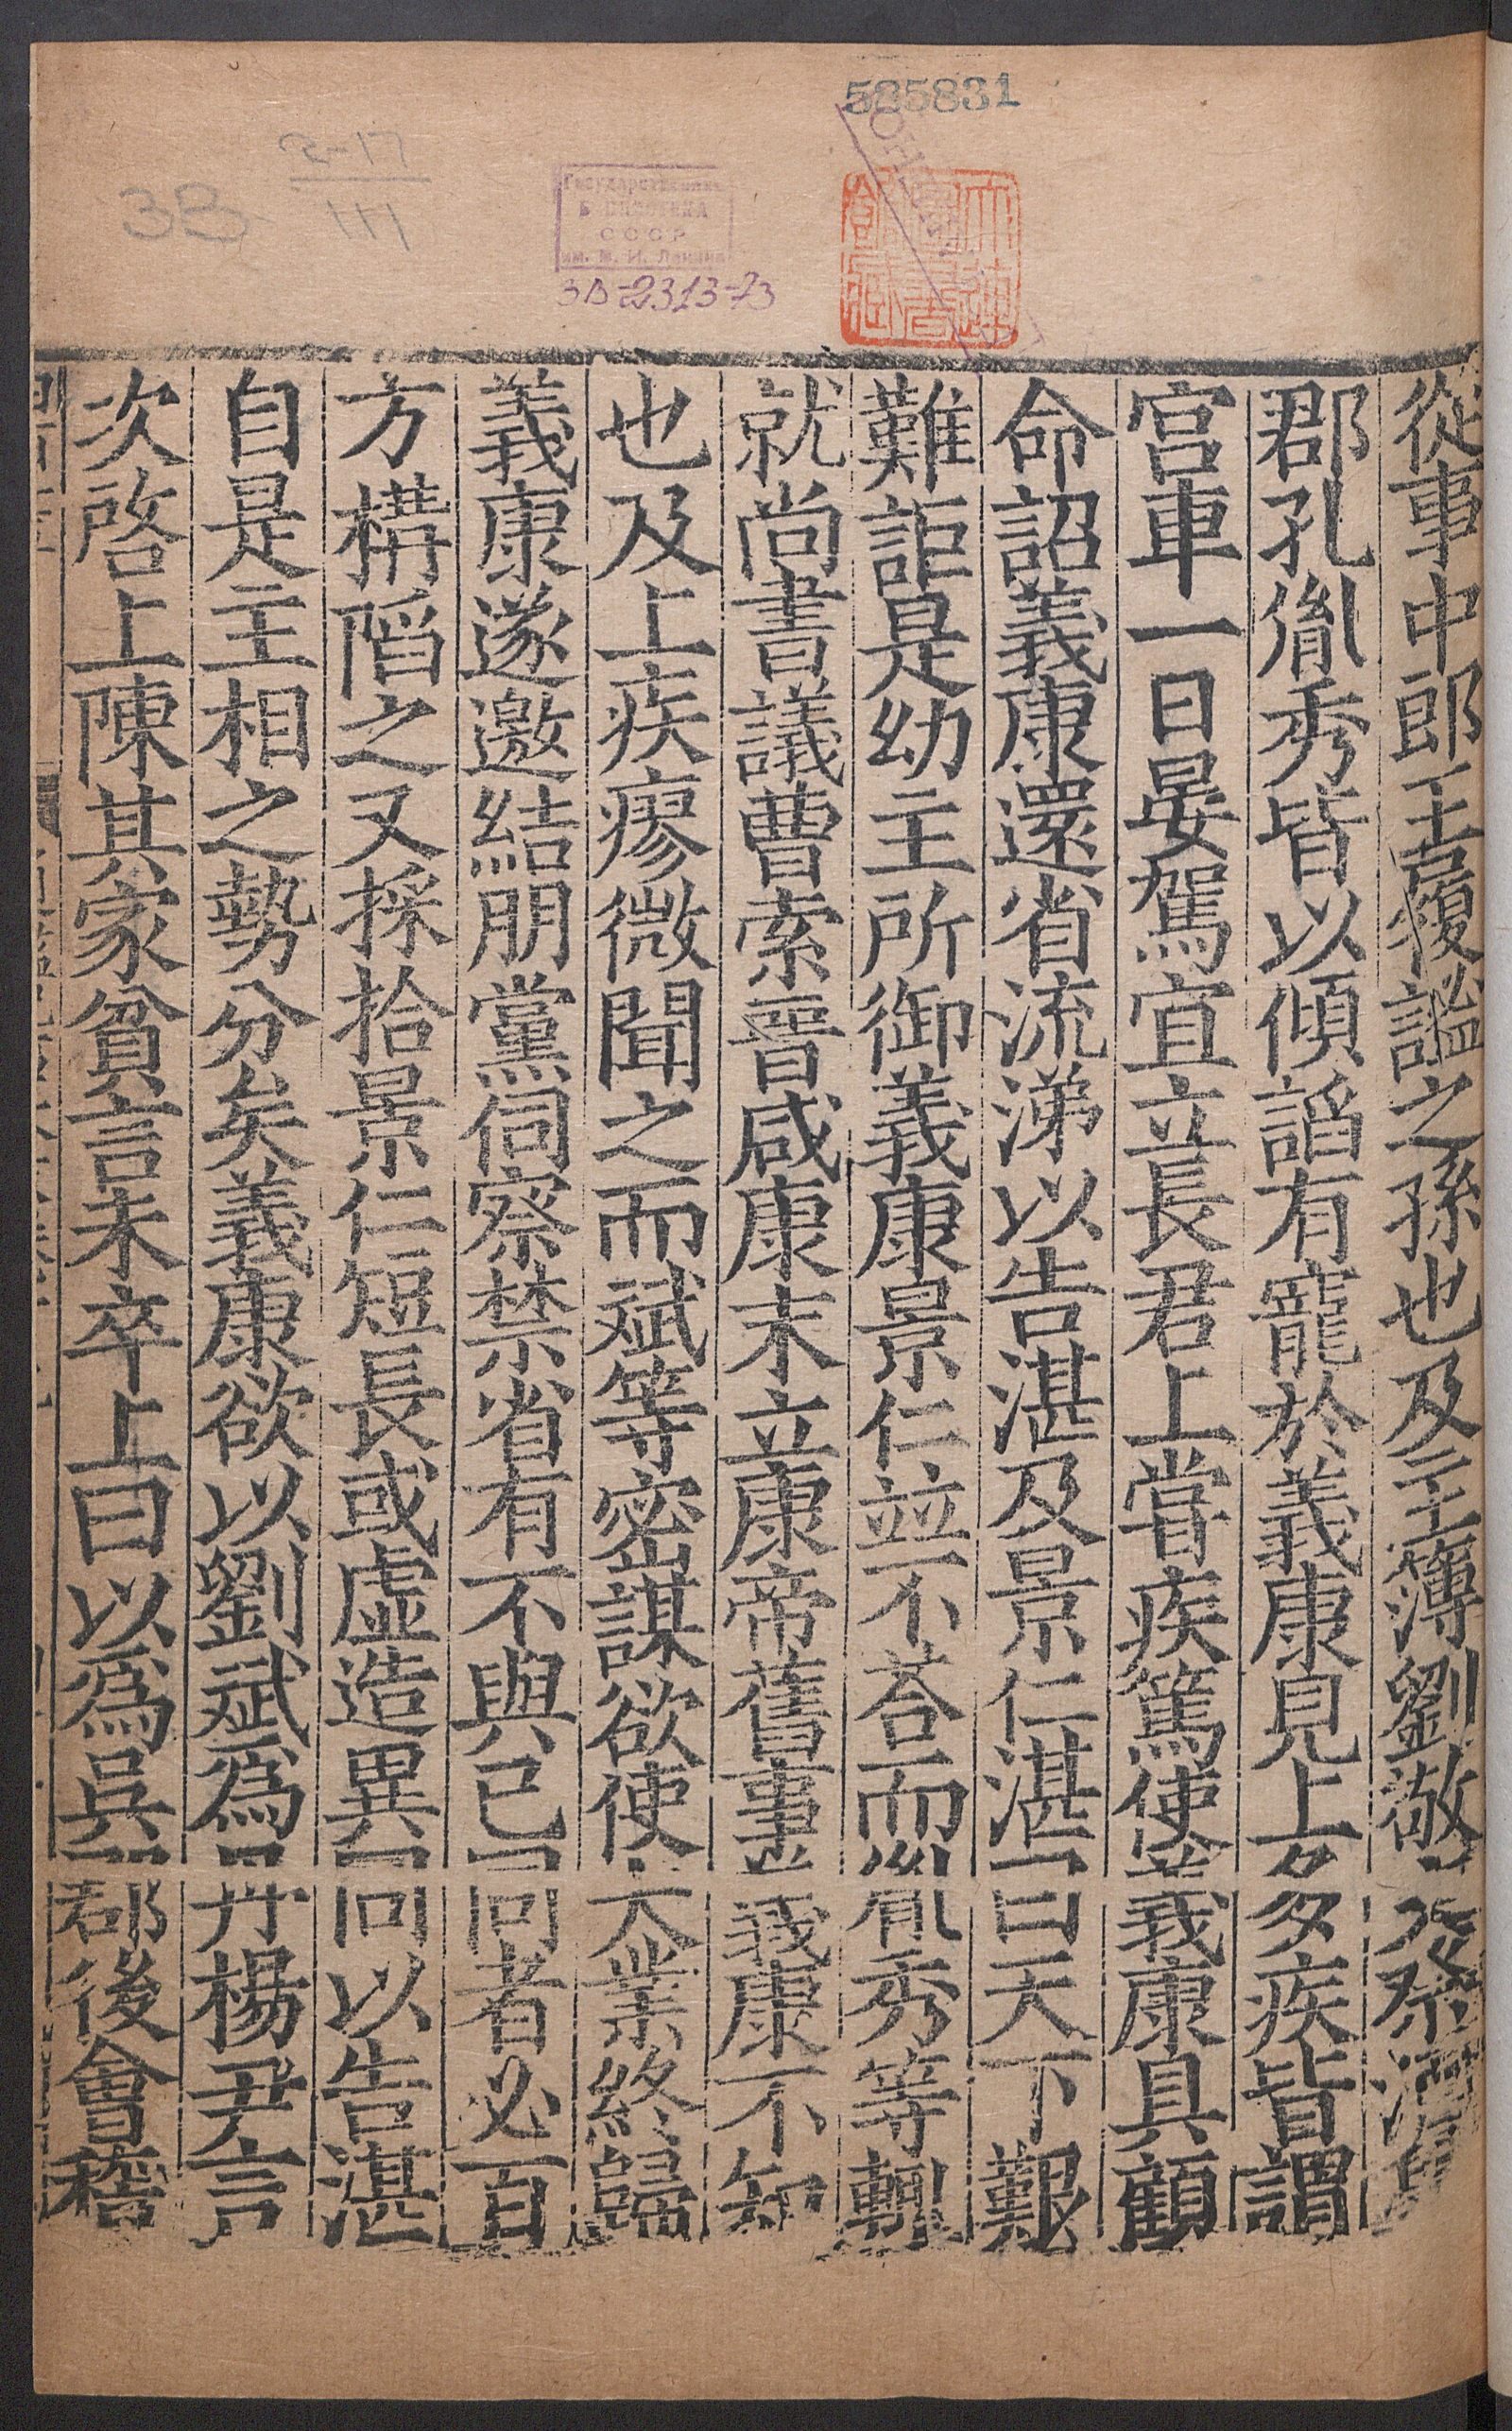 585831
3B
2-17
111
Государственная
БИБЛИОТЕКА
СССР
им. В. И. Ленина
3В-2313-73
從事中郎王履謐之孫也及主簿劉敬文祭酒魯
郡孔胤秀皆以傾諂有寵於義康見上多疾皆謂
宫車一日晏駕宜立長君上嘗疾篤使義康具顧
命詔義康還省流涕以告湛及景仁湛曰天下艱
難詎是幼主所御義康景仁並不荅而胤秀等輒
就尚書議曹索晉咸康末立康帝舊事義康不知
也及上疾瘳微聞之而斌等密謀欲使大業終歸
義康遂邀結朋黨伺察禁省有不與已同者必百
方構䧟之又採拾景仁短長或虛造異同以告湛
自是主相之勢分矣義康欲以劉斌爲丹楊尹言
次啓上陳其家貧言未卒上曰以爲吳郡後會稽